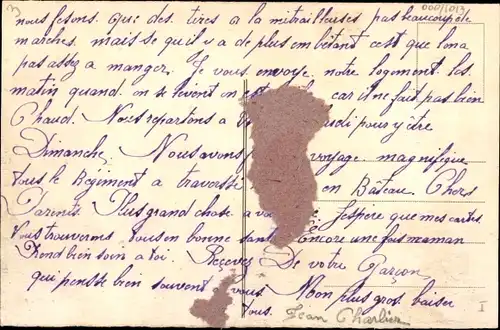 nous fesons que des tires a la mitrailleuses pas beaucoup de
marches. mais se qu'il y a de plus embêtant cest que lon a
pas assez a manger. Je vous envoye notre logement les
matin quand on se levent on est car il ne fait pas bien
Chaud. Nous repartons a pour y être
Dimanche. Nous avons voyage magnifique
tous le Regiment a traversse en Bateau. Chers
Parents. Plus grand chose a vous J'espère que mes cartes
Vous trouverons tous en bonne santé Encore une fois maman
Prend bien soins a toi. Recevez De votre Garçon
qui pensse bien souvent a vous. Mon plus gros baiser
Vous. Jean Charlier